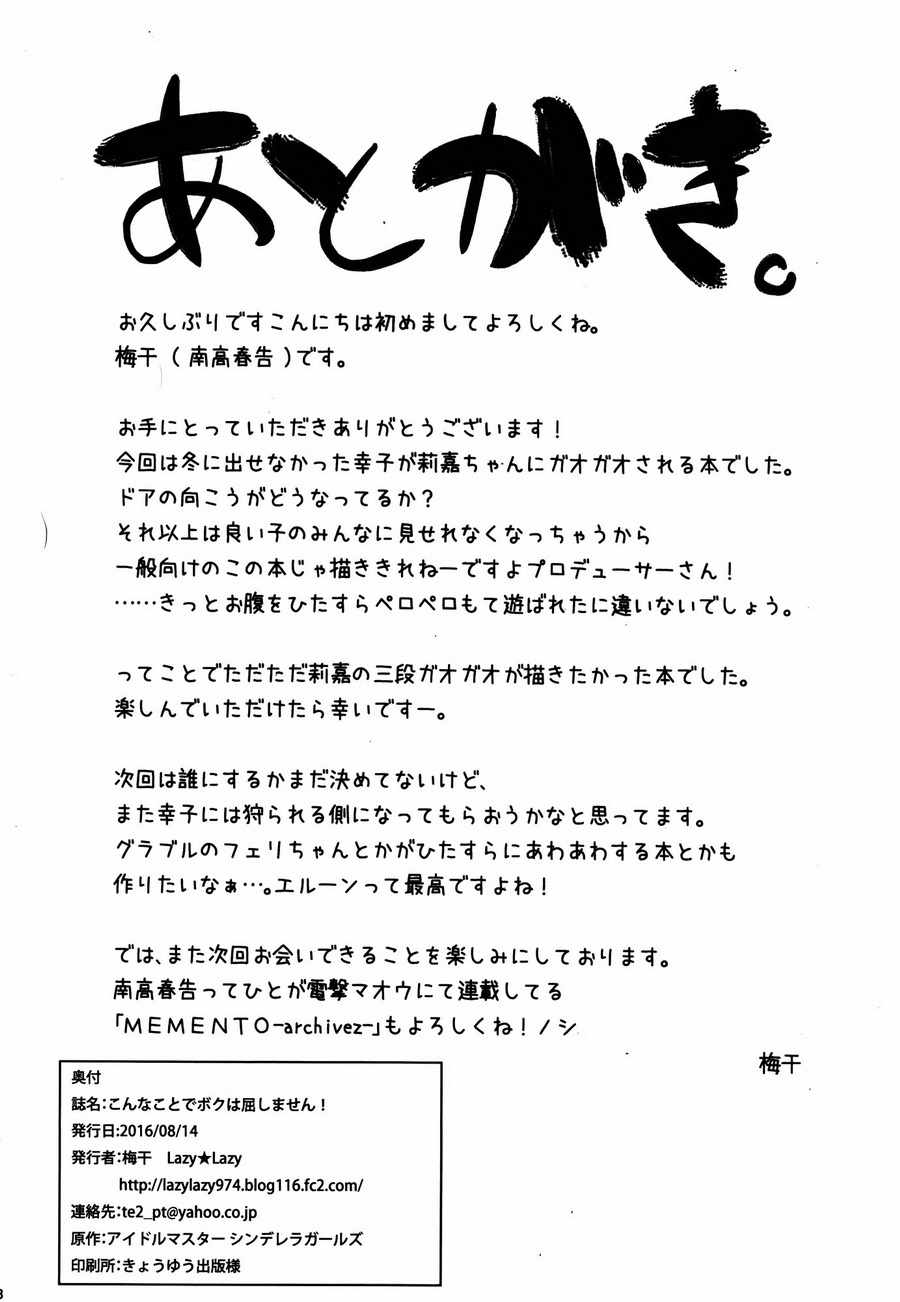 あとがき。
お久しぶりですこんにちは初めましてよろしくね。
梅干（南高春告）です。
お手にとっていただきありがとうございます！
今回は冬に出せなかった幸子が莉嘉ちゃんにガオガオされる本でした。
ドアの向こうがどうなってるか？
それ以上は良い子のみんなに見せれなくなっちゃうから
一般向けのこの本じゃ描ききれねーですよプロデューサーさん！
……きっとお腹をひたすらペロペロもて遊ばれたに違いないでしょう。
ってことでただただ莉嘉の三段ガオガオが描きたかった本でした。
楽しんでいただけたら幸いですー。
次回は誰にするかまだ決めてないけど、
また幸子には狩られる側になってもらおうかなと思ってます。
グラブルのフェリちゃんとかがひたすらにあわあわする本とかも
作りたいなぁ…。エルーンって最高ですよね！
では、また次回お会いできることを楽しみにしております。
南高春告ってひとが電撃マオウにて連載してる
「MEMENTO-archivez-」もよろしくね！ノシ
梅干
奥付
誌名：こんなことでボクは屈しません！
発行日：2016/08/14
発行者：梅干　Lazy★Lazy
http://lazylazy974.blog116.fc2.com/
連絡先：te2_pt@yahoo.co.jp
原作：アイドルマスター シンデレラガールズ
印刷所：きょうゆう出版様